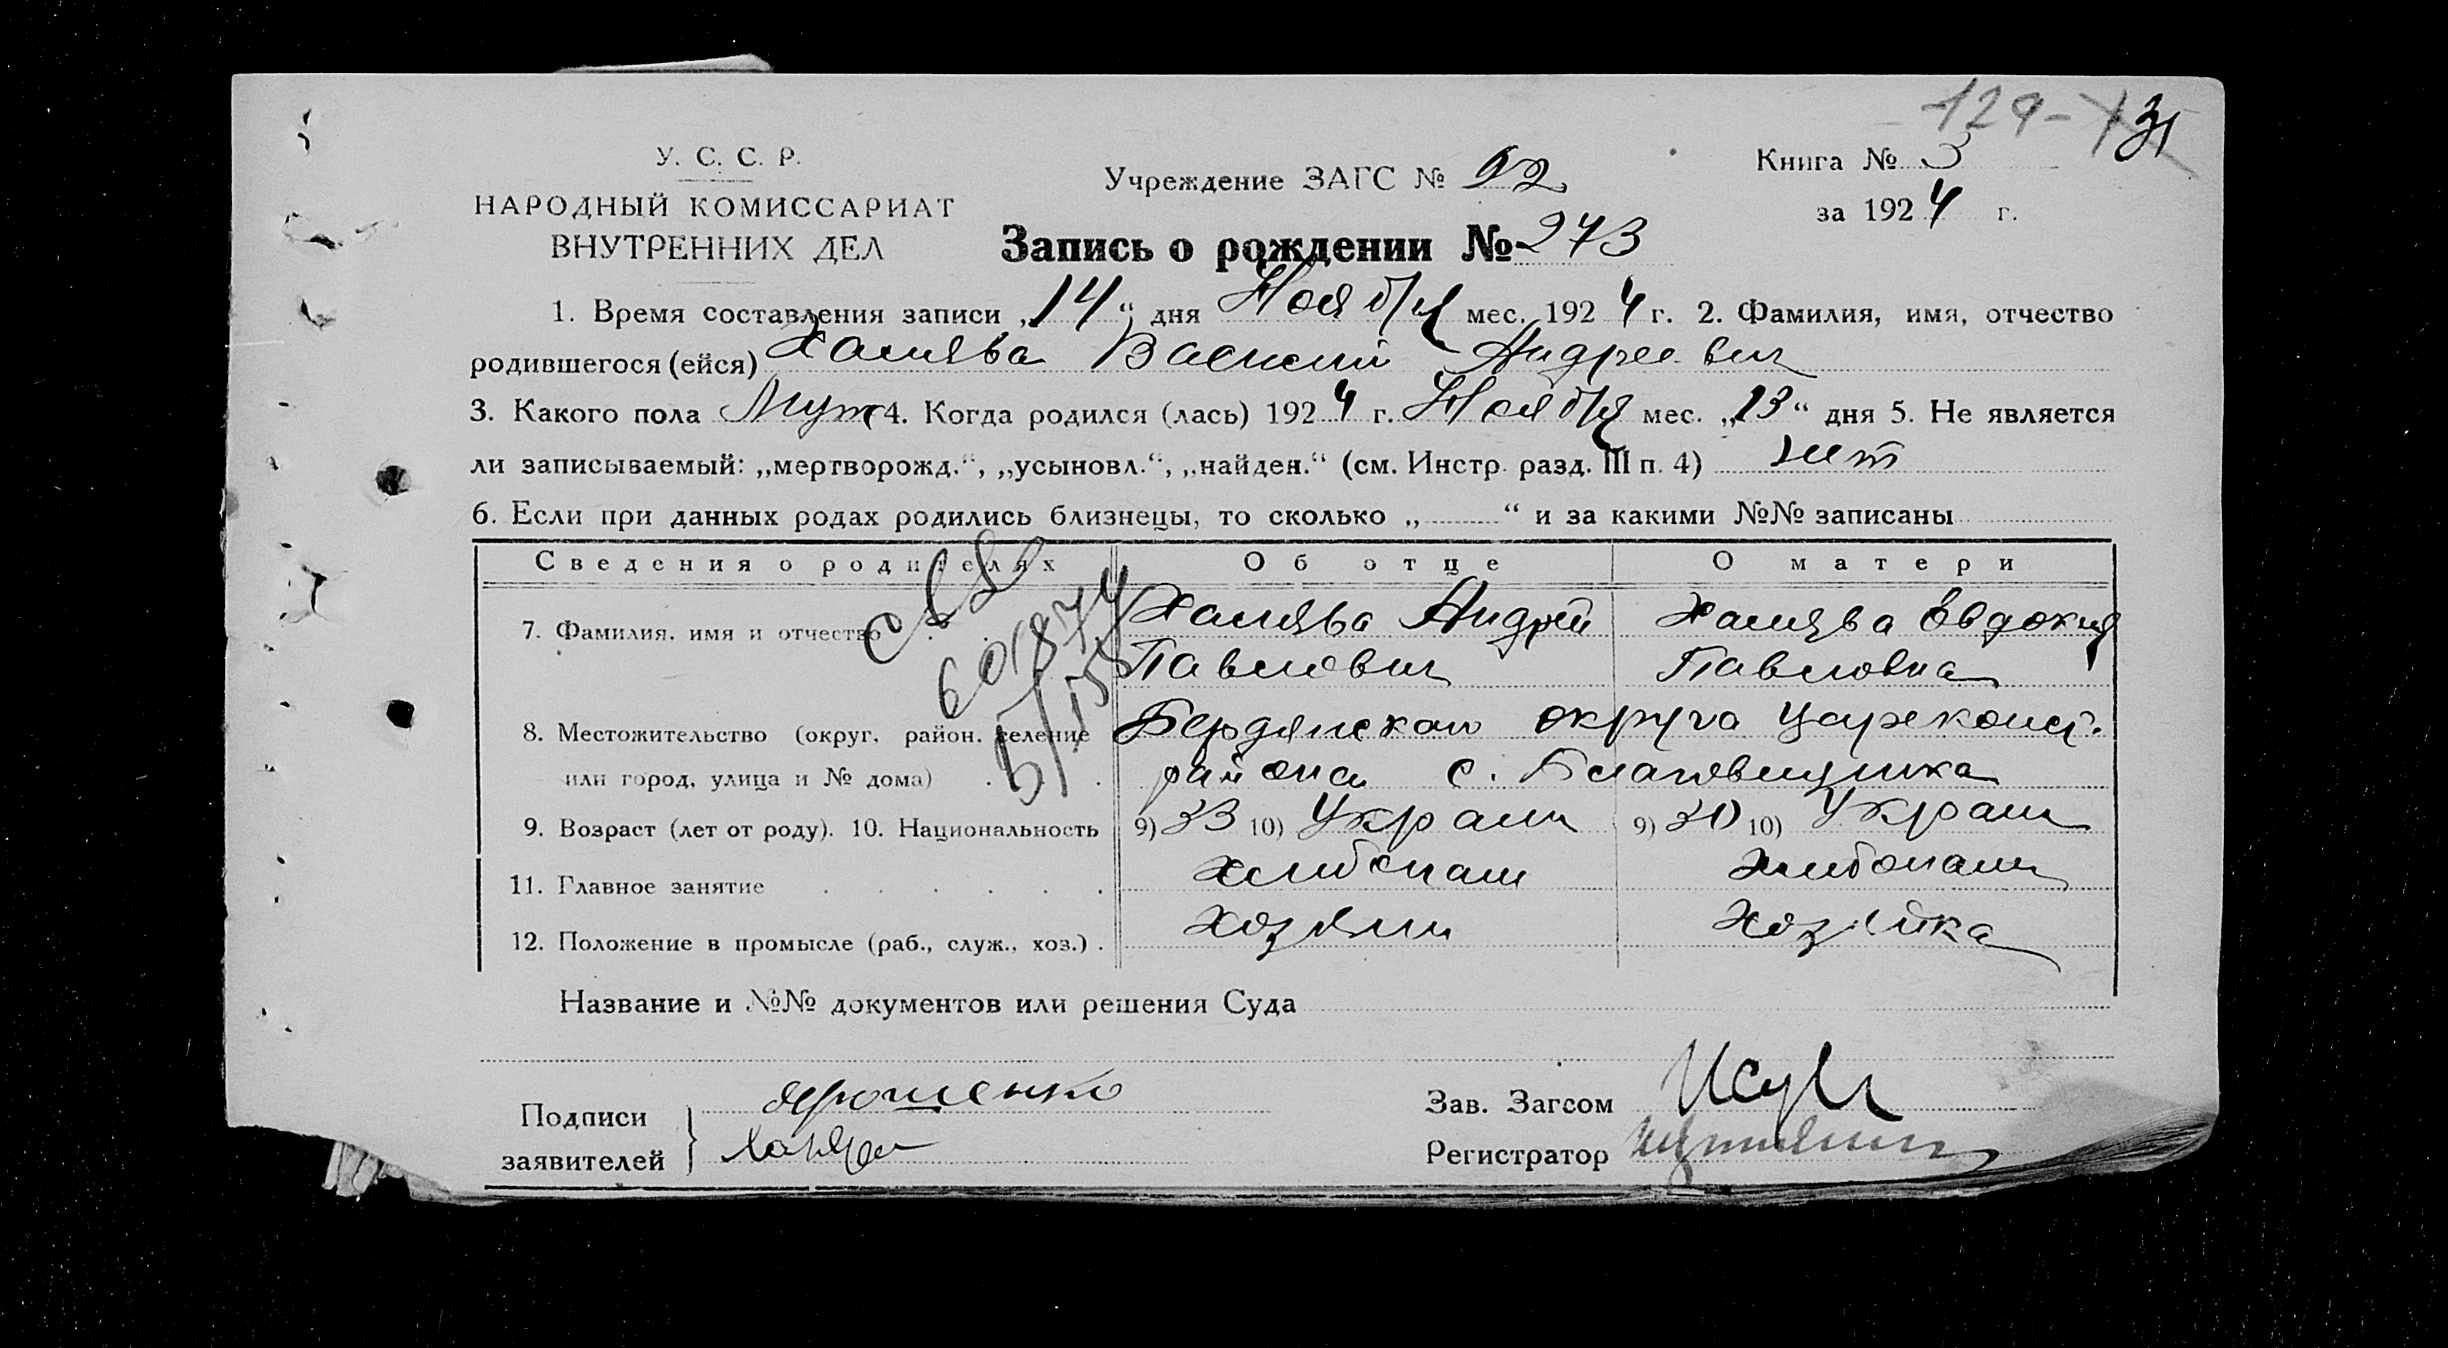 129-
31
У. С. С. Р.
НАРОДНЫЙ КОМИССАРИАТ
ВНУТРЕННИХ ДЕЛ
Учреждение ЗАГС № 22
Книга № 3
за 1924 г.
Запись о рождении № 273
1. Время составления записи „14“ дня Ноября мес. 1924 г. 2. Фамилия, имя, отчество
родившегося (ейся) Халява Василий Андреевич
3. Какого пола Муж 4. Когда родился (лась) 1924 г. Ноября мес. „13“ дня 5. Не является
ли записываемый: „мертворожд.“, „усыновл.“, „найден.“ (см. Инстр. разд. III п. 4) нет
6. Если при данных родах родились близнецы, то сколько „ “ и за какими №№ записаны
Сведения о родителях Об отце О матери
7. Фамилия, имя и отчество Халява Андрей Халява Евдокия
Павлович Павловна
8. Местожительство (округ, район, селение Бердянского округа Цареконст.
или город, улица и № дома) района с. Благовещенка
9. Возраст (лет от роду). 10. Национальность 9) 33 10) Украин 9) 30 10) Украин
11. Главное занятие Хлибопаш Хлибопаш
12. Положение в промысле (раб., служ., хоз.) Хозяин Хозяйка
Название и №№ документов или решения Суда
Подписи Ярошенко
заявителей
Зав. Загсом
Регистратор